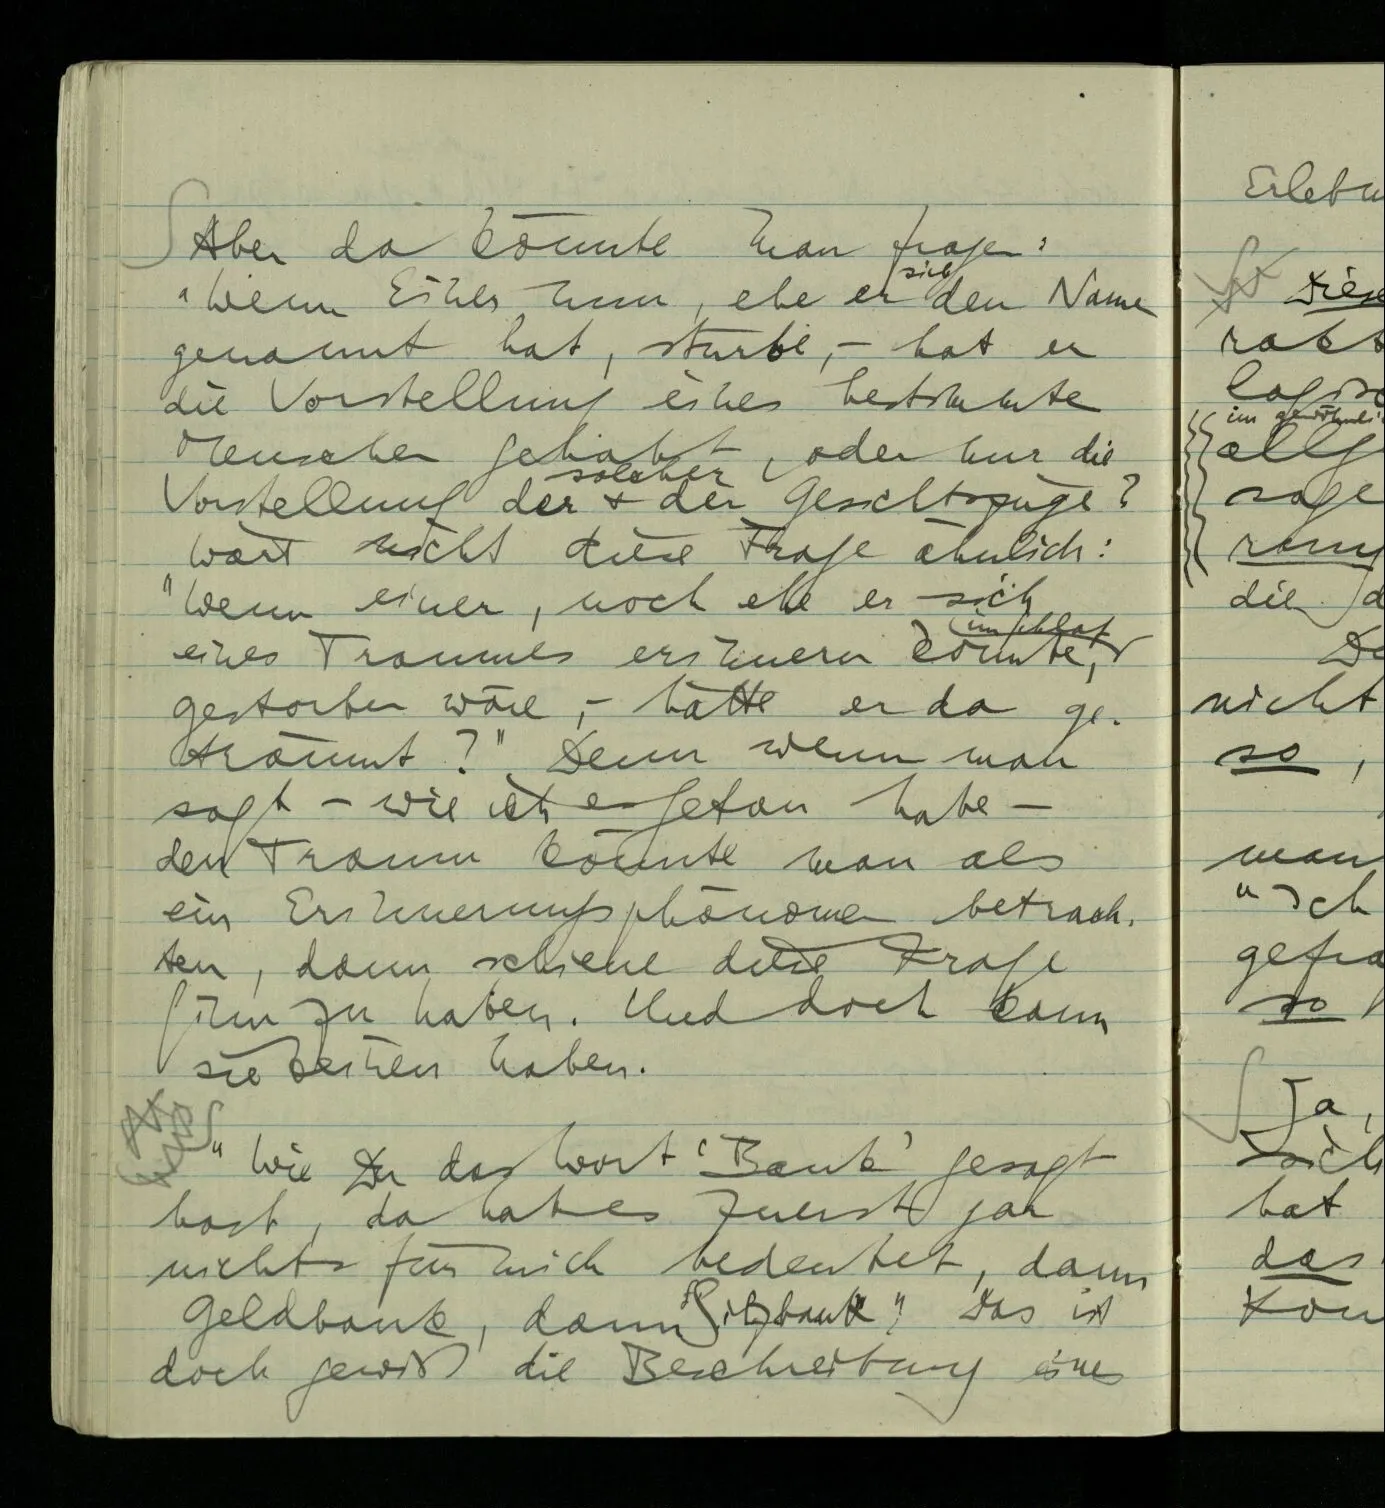 Aber da könnte man fragen:
"Wenn Einer nun, ehe er sich den Namen
genannt hat, stürbe, – hat er
die Vorstellung eines bestimmten
Menschen gehabt, oder nur die
Vorstellung solcher & der Gesichtszüge?
Wäre nicht diese Frage ähnlich:
"Wenn einer, noch ehe er sich
eines Traumes erinnern könnte, im Schlaf
gestorben wäre, – hätte er da ge-
träumt?" Denn wenn man
sagt – wie ich es getan habe –
den Traum könnte man als
ein Erinnerungsphänomen betrach-
ten, dann schiene diese Frage
Sinn zu haben. Und doch kann
sie keinen haben.
"Wie Du das Wort 'Bank' gesagt
hast, da hat es zuerst gar
nichts für mich bedeutet, dann
Geldbank, dann Sitzbank" Das ist
doch gewiß die Beschreibung eines
Diese
nicht
so,
"Ich
so
Ja,
hat
das